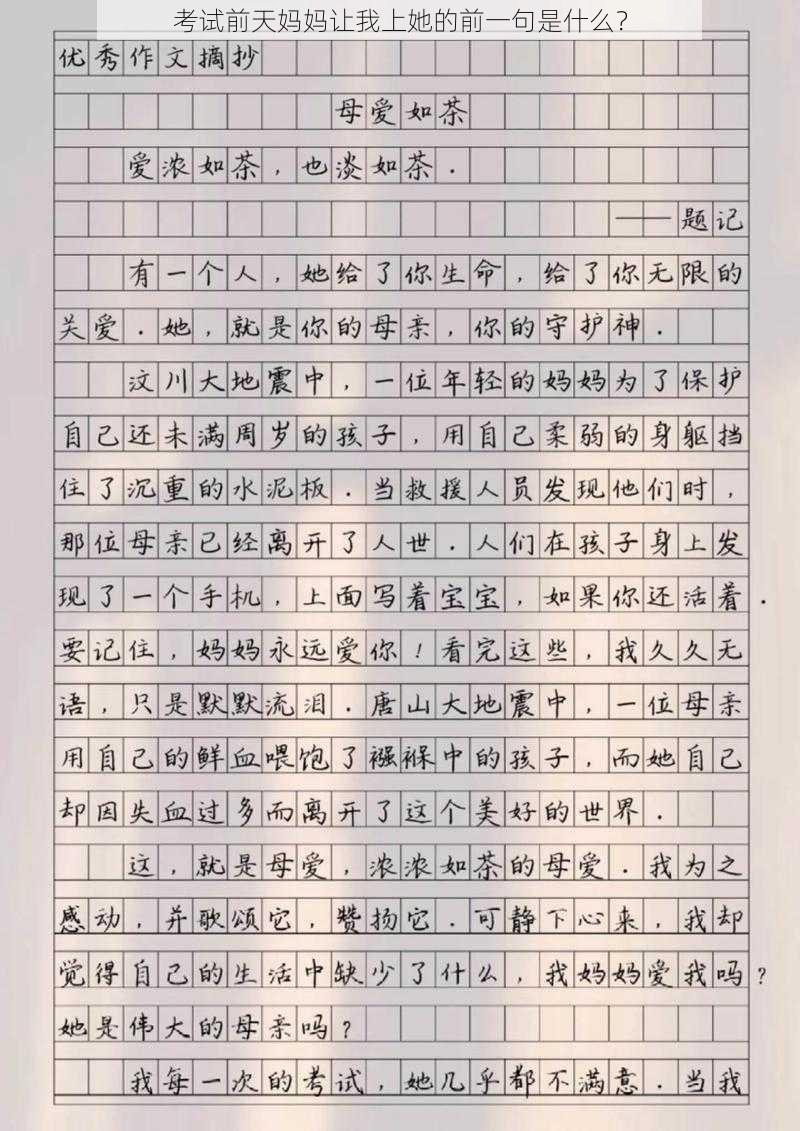 考试前天妈妈让我上她的前一句是什么？
优秀作文摘抄
母爱如茶
爱浓如茶，也淡如茶．
——题记
有一个人，她给了你生命，给了你无限的
关爱．她，就是你的母亲，你的守护神．
汶川大地震中，一位年轻的妈妈为了保护
自己还未满周岁的孩子，用自己柔弱的身躯挡
住了沉重的水泥板．当救援人员发现他们时，
那位母亲已经离开了人世．人们在孩子身上发
现了一个手机，上面写着宝宝，如果你还活着．
要记住，妈妈永远爱你！看完这些，我久久无
语，只是默默流泪．唐山大地震中，一位母亲
用自己的鲜血喂饱了襁褓中的孩子，而她自己
却因失血过多而离开了这个美好的世界．
这，就是母爱，浓浓如茶的母爱．我为之
感动，并歌颂它，赞扬它．可静下心来，我却
觉得自己的生活中缺少了什么，我妈妈爱我吗？
她是伟大的母亲吗？
我每一次的考试，她几乎都不满意．当我